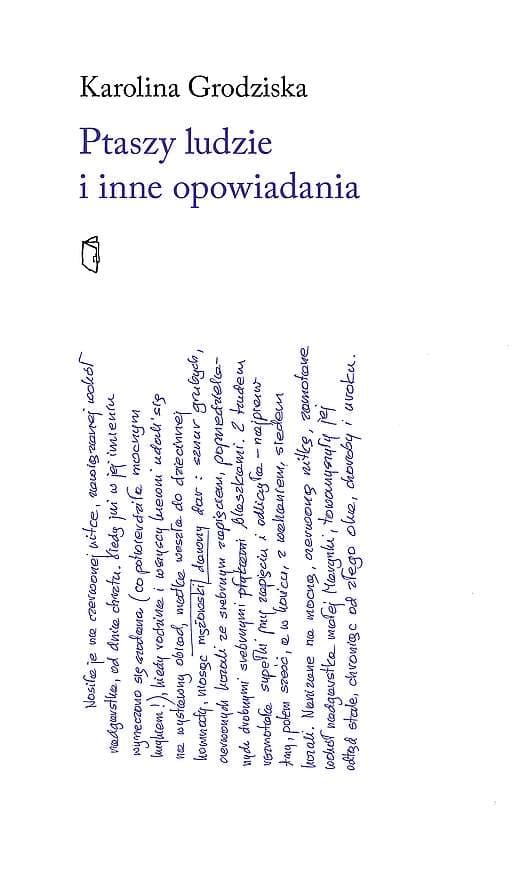 Karolina Grodziska
Ptaszy ludzie
i inne opowiadania
Nosiła je na czerwonej nitce, zawiązanej wokół
nadgarstka, od dnia chrztu. Kiedy już w jej imieniu
wyrzeczono się szatana (co potwierdziła mocnym
krykiem!), kiedy rodzina i wszyscy krewni udali się
na wystawny obiad, matka weszła do dziecinnej
komnaty, niosąc mężowski dawny dar: sznur grubych,
czerwonych korali ze srebrnym zapięciem, poprzedziela-
nych drobnymi srebrnymi płaskimi blaszkami. Z trudem
rozmotała supełki przy zapięciu i odliczyła – najpierw
trzy, potem sześć, a w końcu, z wahaniem, siedem
korali. Nanizane na mocną, czerwoną nitkę, zamotane
wokół nadgarstka małej Marynki, towarzyszyły jej
odtąd stale, chroniąc od złego oka, choroby i uroku.